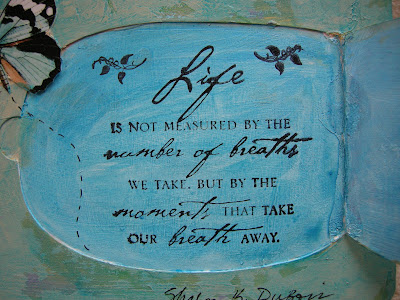 Life
IS NOT MEASURED BY THE
number of breaths
WE TAKE. BUT BY THE
moments THAT TAKE
OUR breath AWAY.